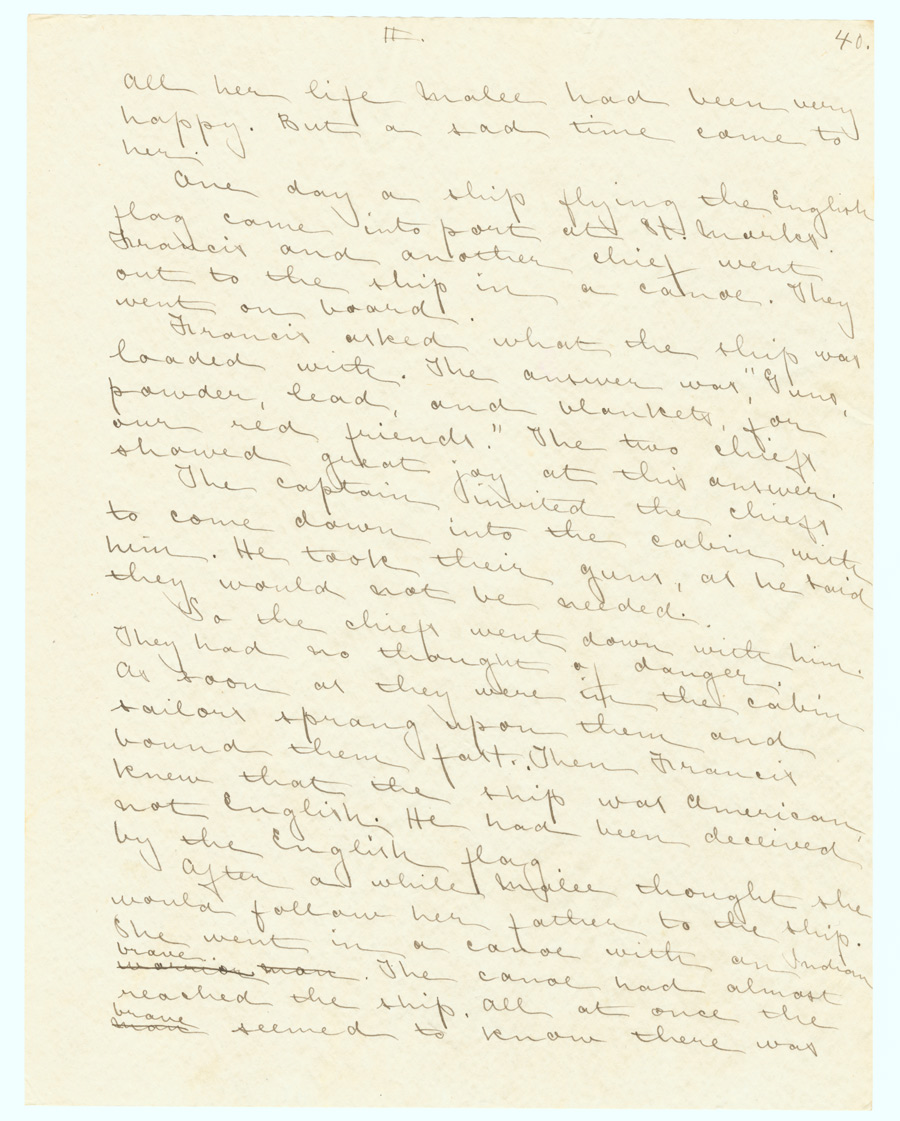 II.
40.
All her life Malee had been very
happy. But a sad time came to
her.
One day a ship flying the English
flag came into port at St. Marks.
Francis and another chief went
out to the ship in a canoe. They
went on board.
Francis asked what the ship was
loaded with. The answer was, "Guns,
powder, lead, and blankets, for
our red friends." The two chiefs
showed great joy at this answer.
The captain invited the chiefs
to come down into the cabin with
him. He took their guns, as he said
they would not be needed.
So the chiefs went down with him.
They had no thought of danger.
As soon as they were in the cabin
sailors sprang upon them and
bound them fast. Then Francis
knew that the ship was American,
not English. He had been deceived
by the English flag.
After a while Malee thought she
would follow her father to the ship.
She went in a canoe with an Indian
brave.
warrior man. The canoe had almost
reached the ship. All at once the
brave
man seemed to know there was